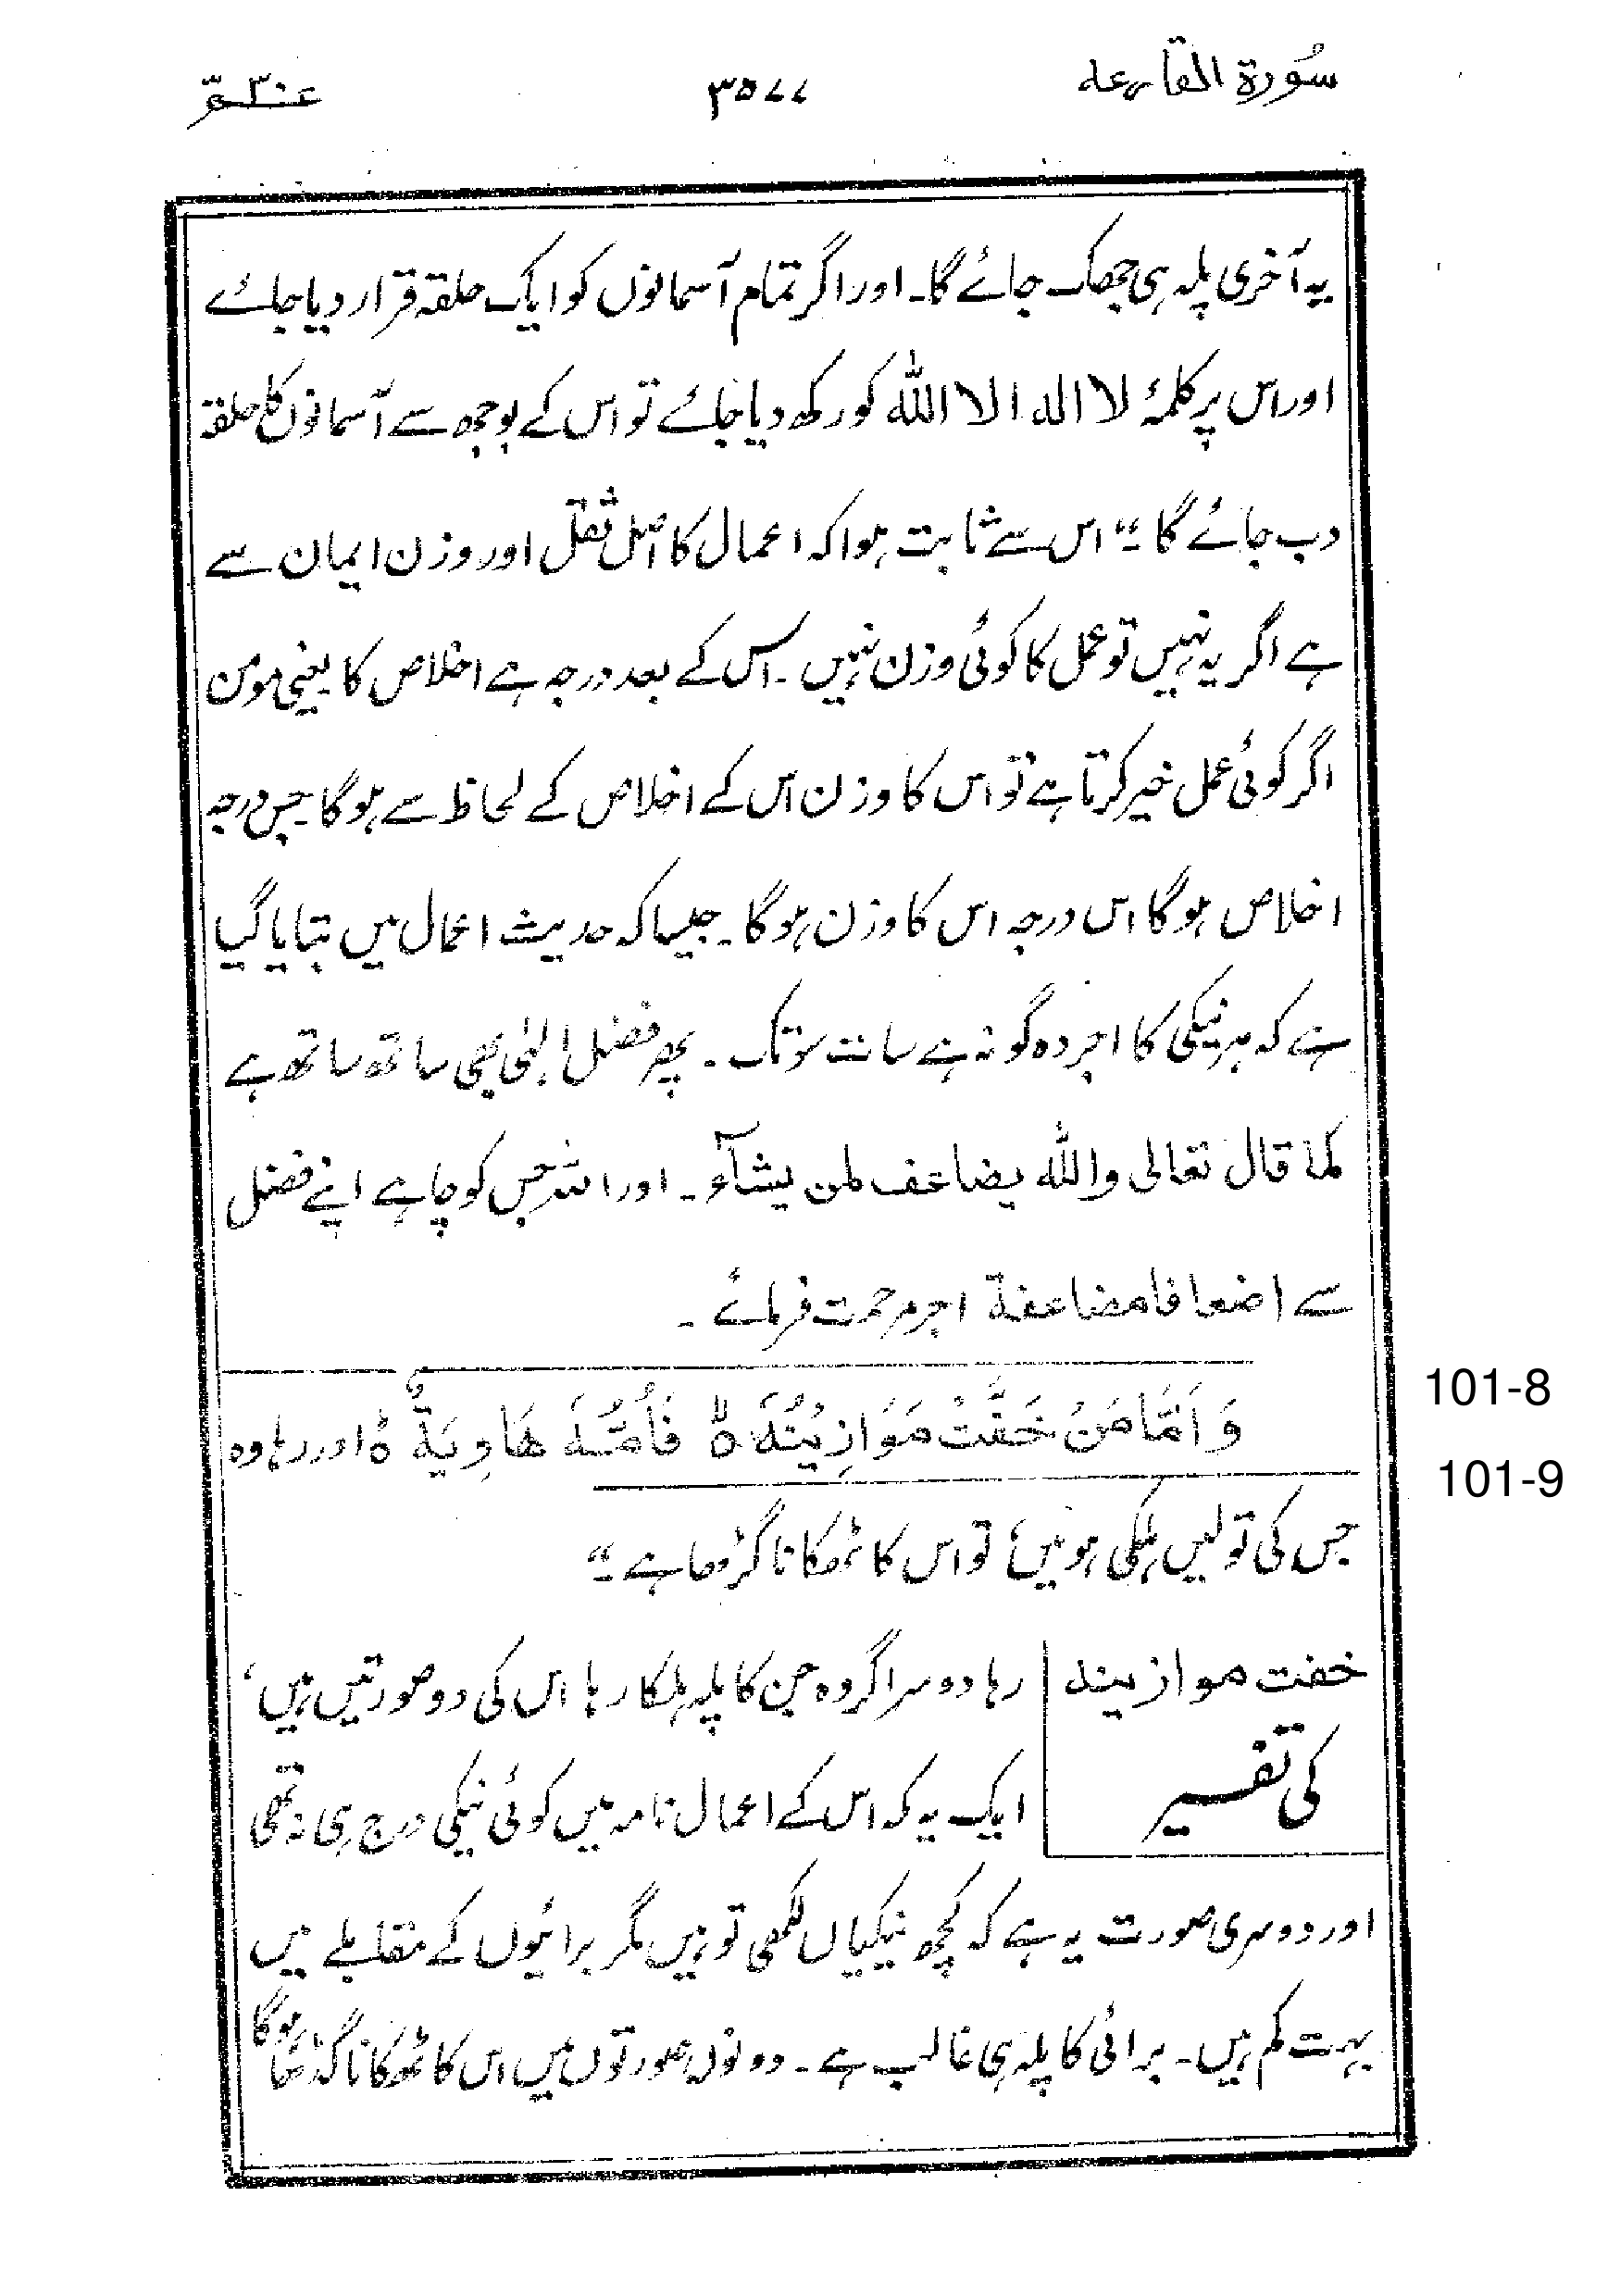 سُورة القارعه ٣٥٧٧ عـ٣٠ـمّ
یہ آخری پلہ ہی جھک جائے گا۔ اور اگر تمام آسمانوں کو ایک حلقہ قرار دیا جائے
اور اس پر کلمۂ لا الہ الا اللہ کو رکھ دیا جائے تو اس کے بوجھ سے آسمانوں کا حلقہ
دب جائے گا۔“ اس سے ثابت ہوا کہ اعمال کا اصل ثقل اور وزن ایمان سے
ہے اگر یہ نہیں تو عمل کا کوئی وزن نہیں۔ اس کے بعد درجہ ہے اخلاص کا یعنی مومن
اگر کوئی عمل خیر کرتا ہے تو اس کا وزن اس کے اخلاص کے لحاظ سے ہوگا۔ جس درجہ
اخلاص ہوگا اس درجہ اس کا وزن ہوگا۔ جیسا کہ حدیث اعمال میں بتایا گیا
ہے کہ ہر نیکی کا اجر دہ گونہ ہے سات سو تک۔ پھر فضل الہٰی بھی ساتھ ساتھ ہے
کما قال تعالی واللہ یضاعف لمن یشآء۔ اور اللہ جس کو چاہے اپنے فضل
سے اضعافا مضاعفة اجر مرحمت فرمائے۔
وَاَمَّا مَنْ خَفَّتْ مَوَازِيْنُهٗ ۙ فَاُمُّهٗ هَاوِيَةٌ ؕ اور رہا وہ
101-8
101-9
جس کی تولیں ہلکی ہوئیں، تو اس کا ٹھکانا گڑھا ہے۔“
خفت موازینہ | رہا دوسرا گروہ جن کا پلہ ہلکا رہا اس کی دو صورتیں ہیں،
کی تفسیر | ایک یہ کہ اس کے اعمال نامہ میں کوئی نیکی درج ہی نہ تھی
اور دوسری صورت یہ ہے کہ کچھ نیکیاں لکھی تو ہیں مگر برائیوں کے مقابلے میں
بہت کم ہیں۔ برائی کا پلہ ہی غالب ہے۔ دونوں صورتوں میں اس کا ٹھکانا گڈھا ہوگا